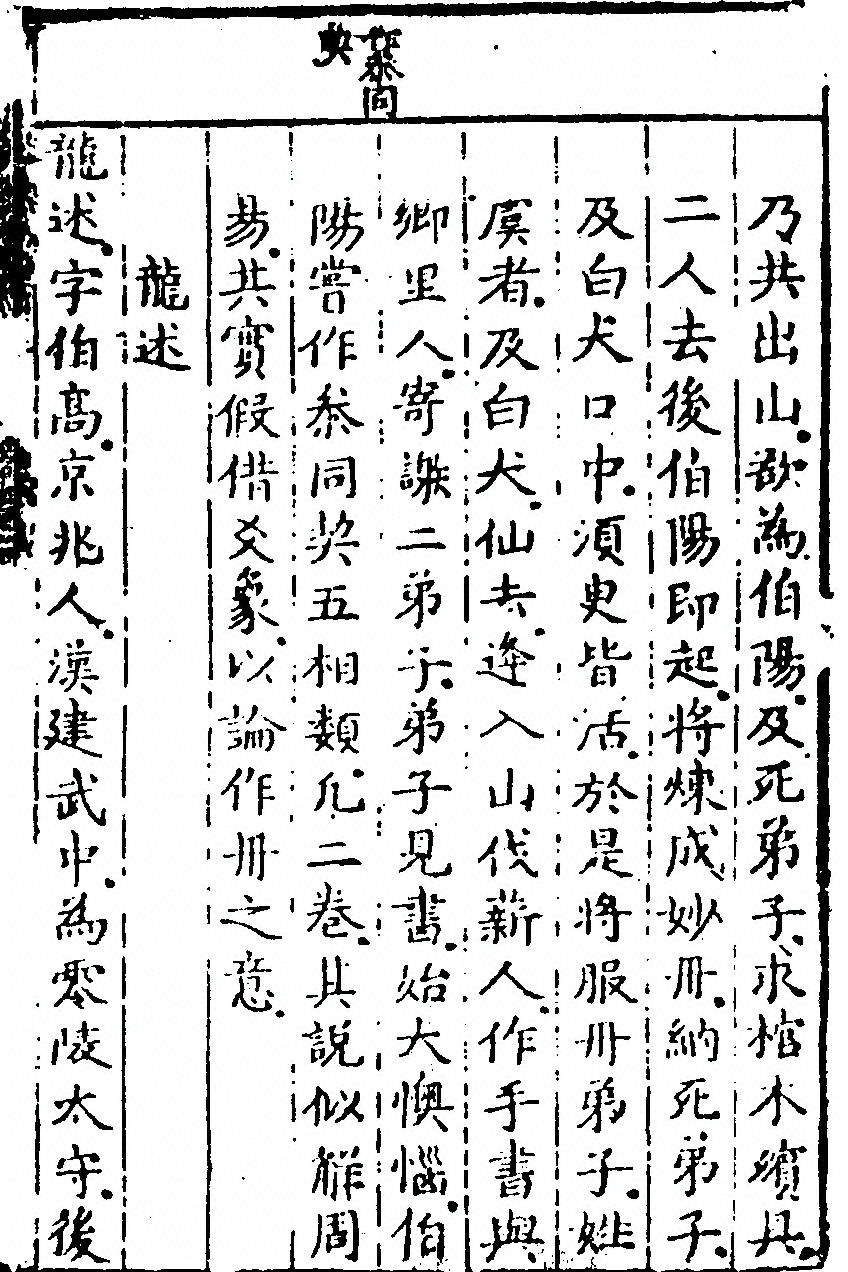 作叅同
契
乃共出山欲為伯陽及死弟子求棺木殯具
二人去後伯陽即起將煉成妙丹納死弟子
及白犬口中須臾皆活於是將服丹弟子姓
虞者及白犬仙去逢入山伐薪人作手書與
鄉里人寄謝二弟子弟子見書始大懊惱伯
陽嘗作叅同契五相類凡二卷其說似解周
易其實假借爻象以論作丹之意
龍述
龍述字伯高京兆人漢建武中為零陵太守後